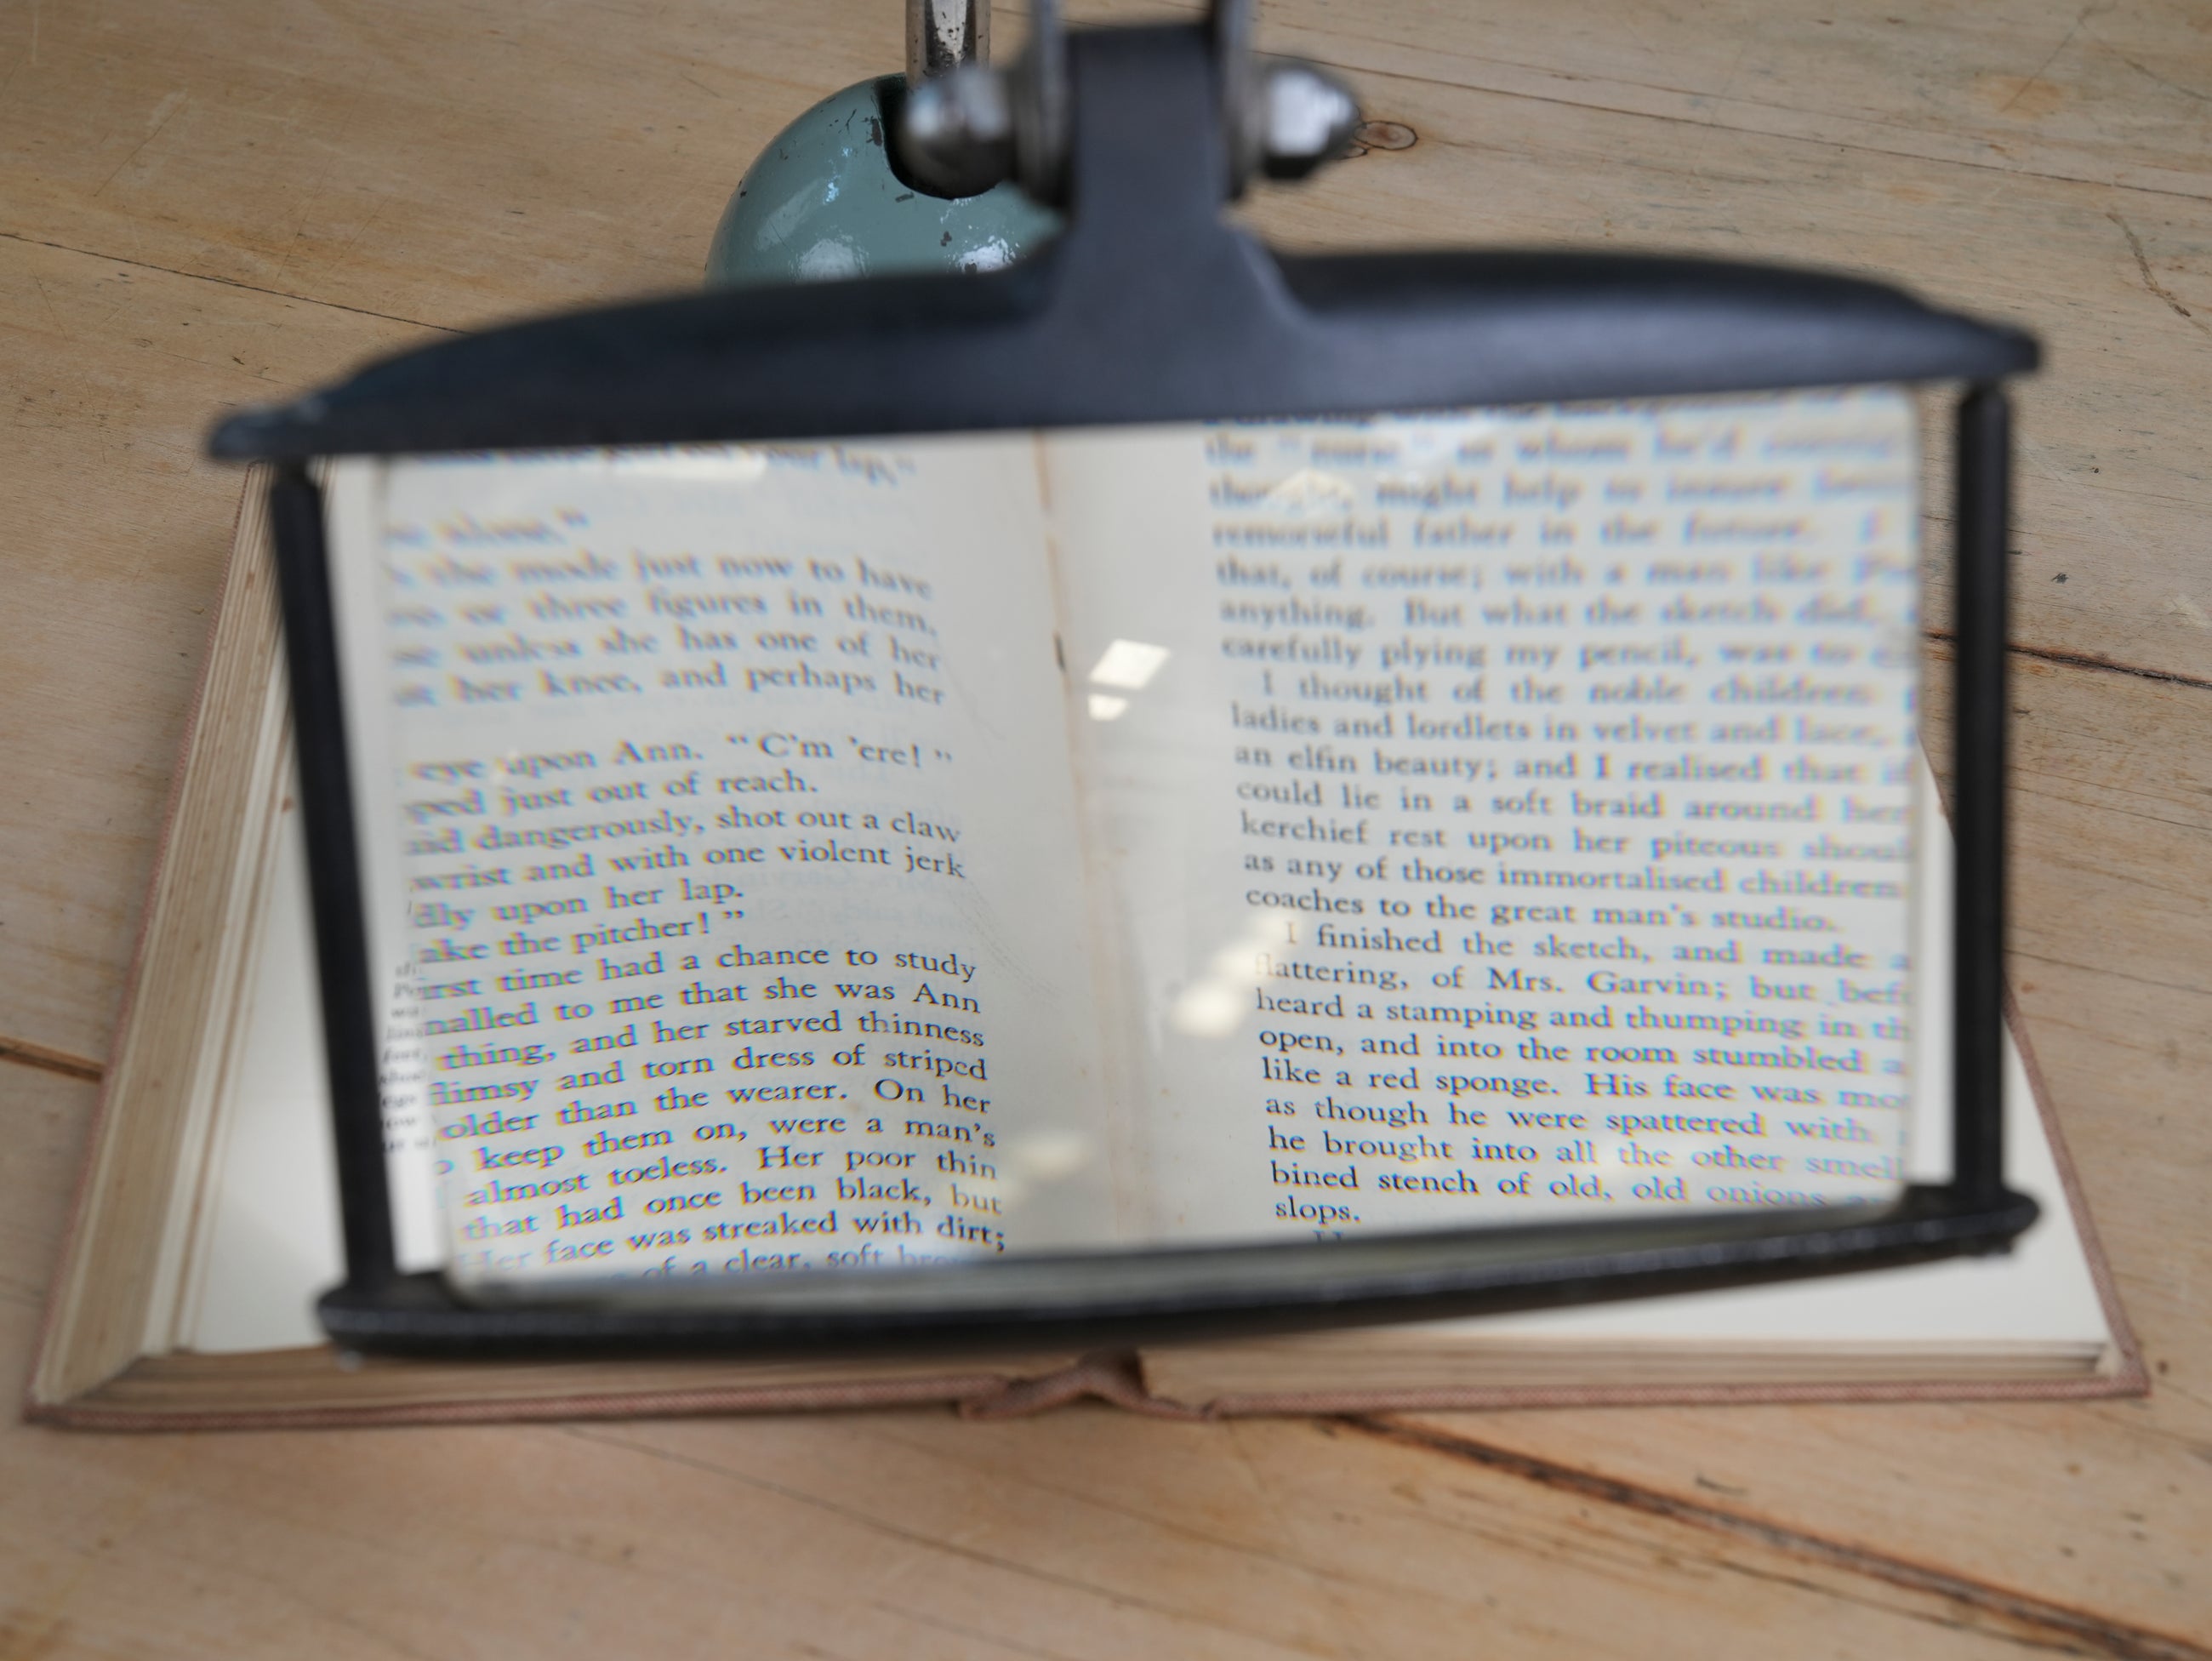 lap,"
alone."
the mode just now to have
or three figures in them,
unless she has one of her
her knee, and perhaps her
eye upon Ann. "C'm 'ere!"
ped just out of reach.
dangerously, shot out a claw
wrist and with one violent jerk
dly upon her lap.
ake the pitcher!"
time had a chance to study
nalled to me that she was Ann
thing, and her starved thinness
flimsy and torn dress of striped
older than the wearer. On her
keep them on, were a man's
almost toeless. Her poor thin
that had once been black, but
Her face was streaked with dirt;
of a clear, soft
the "nurse" to whom he'd
might help to insure
remorseful father in the future. I
that, of course; with a man like
anything. But what the sketch did,
carefully plying my pencil, was to
I thought of the noble children
ladies and lordlets in velvet and lace,
an elfin beauty; and I realised that if
could lie in a soft braid around her
kerchief rest upon her piteous shoul
as any of those immortalised children
coaches to the great man's studio.
I finished the sketch, and made a
flattering, of Mrs. Garvin; but bef
heard a stamping and thumping in th
open, and into the room stumbled a
like a red sponge. His face was mo
as though he were spattered with
he brought into all the other smell
bined stench of old, old onions
slops.